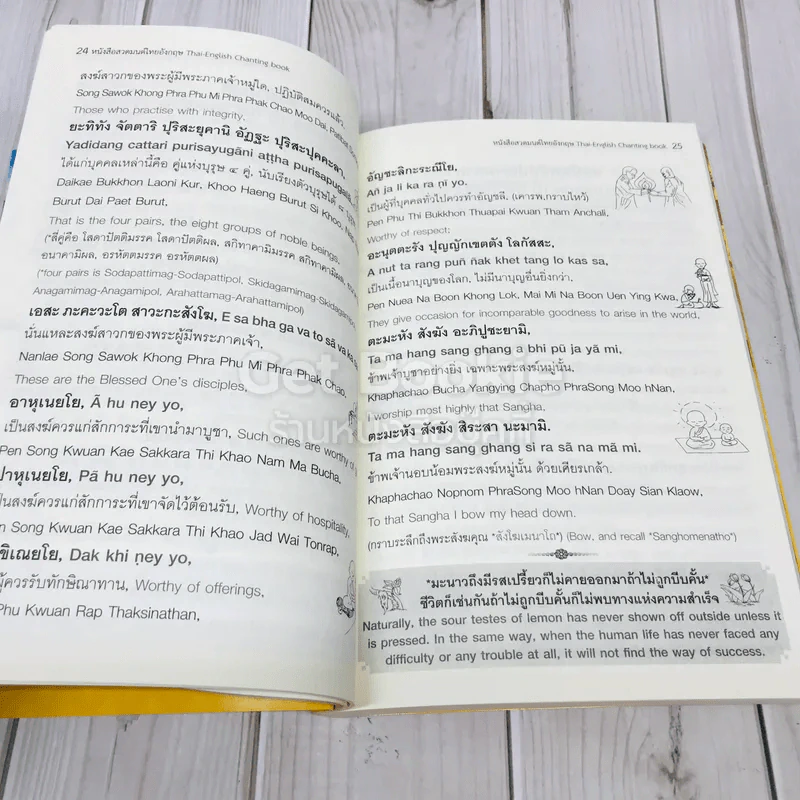 24 หนังสือสวดมนต์ไทยอังกฤษ Thai-English Chanting book
สงฆ์สาวกของพระผู้มีพระภาคเจ้าหมู่ใด, ปฏิบัติสมควรแล้ว,
Song Sawok Khong Phra Phu Mi Phra Phak Chao Moo Dai,
Those who practise with integrity.
ยะทิทัง จัตตาริ ปุริสะยุคานิ อัฏฐะ ปุริสะปุคคะลา,
Yadidang cattari purisayugāni aṭṭha purisapugalā,
ได้แก่บุคคลเหล่านี้คือ คู่แห่งบุรุษ ๔ คู่, นับเรียงตัวบุรุษได้ ๘
Daikae Bukkhon Laoni Kur, Khoo Haeng Burut Si Khoo,
Burut Dai Paet Burut,
That is the four pairs, the eight groups of noble beings,
(*สี่คู่คือ โสดาปัตติมรรค โสดาปัตติผล, สกิทาคามิมรรค สกิทาคามิผล,
อนาคามิผล, อรหัตตมรรค อรหัตตผล)
(*four pairs is Sodapattimag-Sodapattipol, Skidagamimag-Skidagamipol
Anagamimag-Anagamipol, Arahattamag-Arahattamipol)
เอสะ ภะคะวะโต สาวะกะสังโฆ, E sa bha ga va to sā va ka
นั่นแหละสงฆ์สาวกของพระผู้มีพระภาคเจ้า,
Nanlae Song Sawok Khong Phra Phu Mi Phra Phak Chao,
These are the Blessed One's disciples,
อาหุเนยโย, Ā hu ney yo,
เป็นสงฆ์ควรแก่สักการะที่เขานำมาบูชา, Such ones are worthy of
Pen Song Kwuan Kae Sakkara Thi Khao Nam Ma Bucha,
ปาหุเนยโย, Pā hu ney yo,
เป็นสงฆ์ควรแก่สักการะที่เขาจัดไว้ต้อนรับ, Worthy of hospitality,
Song Kwuan Kae Sakkara Thi Khao Jad Wai Tonrap,
Dak khi ṇey yo,
ผู้ควรรับทักษิณาทาน, Worthy of offerings,
Phu Kwuan Rap Thaksinathan,
หนังสือสวดมนต์ไทยอังกฤษ Thai-English Chanting book 25
อัญชะลิกะระณีโย,
Añ ja li ka ra ṇī yo.
เป็นผู้ที่บุคคลทั่วไปควรทำอัญชลี, (เคารพ,กราบไหว้)
Pen Phu Thi Bukkhon Thuapai Kwuan Tham Anchali,
Worthy of respect;
อะนุตตะรัง ปุญญักเขตตัง โลกัสสะ,
A nut ta rang puñ ñak khet tang lo kas sa,
เป็นเนื้อนาบุญของโลก, ไม่มีนาบุญอื่นยิ่งกว่า,
Pen Nuea Na Boon Khong Lok, Mai Mi Na Boon Uen Ying Kwa,
They give occasion for incomparable goodness to arise in the world,
ตะมะหัง สังฆัง อะภิปูชะยามิ,
Ta ma hang sang ghang a bhi pū ja yā mi,
ข้าพเจ้าบูชาอย่างยิ่ง เฉพาะพระสงฆ์หมู่นั้น,
Khaphachao Bucha Yangying Chapho PhraSong Moo hNan,
I worship most highly that Sangha,
ตะมะหัง สังฆัง สิระสา นะมามิ.
Ta ma hang sang ghang si ra sā na mā mi.
ข้าพเจ้านอบน้อมพระสงฆ์หมู่นั้น ด้วยเศียรเกล้า.
Khaphachao Nopnom PhraSong Moo hNan Doay Sian Klaow,
To that Sangha I bow my head down.
(กราบระลึกถึงพระสังฆคุณ "สังโฆเมนาโถ") (Bow, and recall "Sanghomenatho")
"มะนาวถึงมีรสเปรี้ยวก็ไม่คายออกมาถ้าไม่ถูกบีบคั้น"
ชีวิตก็เช่นกันถ้าไม่ถูกบีบคั้นก็ไม่พบทางแห่งความสำเร็จ
Naturally, the sour testes of lemon has never shown off outside unless it
is pressed. In the same way, when the human life has never faced any
difficulty or any trouble at all, it will not find the way of success.